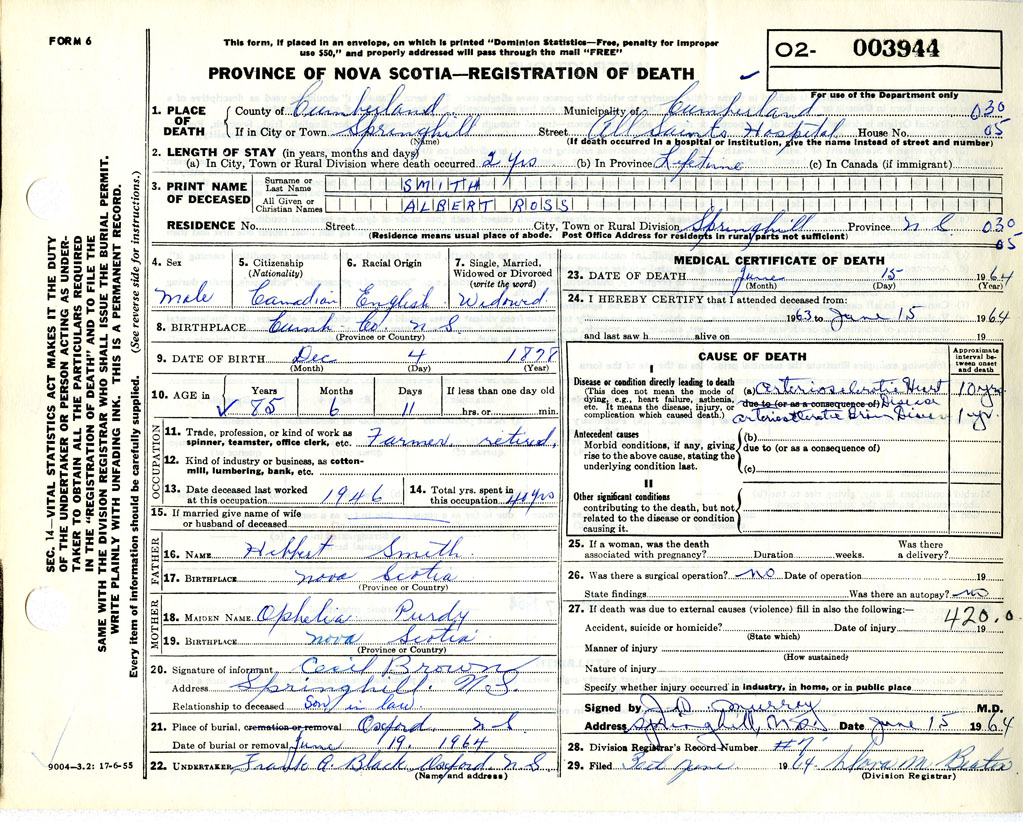 FORM 6
This form, if placed in an envelope, on which is printed "Dominion Statistics—Free, penalty for improper
use $50," and properly addressed will pass through the mail "FREE"
O2- 003944
PROVINCE OF NOVA SCOTIA—REGISTRATION OF DEATH
For use of the Department only
SEC. 14—VITAL STATISTICS ACT MAKES IT THE DUTY
OF THE UNDERTAKER OR PERSON ACTING AS UNDER-
TAKER TO OBTAIN ALL THE PARTICULARS REQUIRED
IN THE "REGISTRATION OF DEATH" AND TO FILE THE
SAME WITH THE DIVISION REGISTRAR WHO SHALL ISSUE THE BURIAL PERMIT.
WRITE PLAINLY WITH UNFADING INK. THIS IS A PERMANENT RECORD.
Every item of information should be carefully supplied. (See reverse side for instructions.)
1. PLACE OF DEATH County of Cumberland Municipality of Cumberland 030
If in City or Town Springhill Street All Saints Hospital House No. 05
(Name) (If death occurred in a hospital or institution, give the name instead of street and number)
2. LENGTH OF STAY (in years, months and days)
(a) In City, Town or Rural Division where death occurred 2 yrs (b) In Province Lifetime (c) In Canada (if immigrant)
3. PRINT NAME OF DECEASED Surname or Last Name SMITH
All Given or Christian Names ALBERT ROSS
RESIDENCE No. Street City, Town or Rural Division Springhill Province N S 030
(Residence means usual place of abode. Post Office Address for residents in rural parts not sufficient) 05
4. Sex 5. Citizenship (Nationality) 6. Racial Origin 7. Single, Married, Widowed or Divorced (write the word)
Male Canadian English Widowed
8. BIRTHPLACE Cumb Co. N S.
(Province or Country)
9. DATE OF BIRTH Dec 4 1878
(Month) (Day) (Year)
10. AGE in Years Months Days If less than one day old
75 6 11 hrs. or min.
OCCUPATION
11. Trade, profession, or kind of work as spinner, teamster, office clerk, etc. Farmer, retired,
12. Kind of industry or business, as cotton-mill, lumbering, bank, etc.
13. Date deceased last worked at this occupation 1946 14. Total yrs. spent in this occupation 40 yrs
15. If married give name of wife or husband of deceased
FATHER
16. NAME Hibbert Smith
17. BIRTHPLACE Nova Scotia
(Province or Country)
MOTHER
18. MAIDEN NAME Ophelia Purdy
19. BIRTHPLACE Nova Scotia
(Province or Country)
20. Signature of informant Cecil Brown
Address Springhill. N.S.
Relationship to deceased Son in law
21. Place of burial, cremation or removal Oxford N S
Date of burial or removal June 19. 1964
22. UNDERTAKER Frank A Black Oxford. N.S
(Name and address)
9004—3.2: 17-6-55
MEDICAL CERTIFICATE OF DEATH
23. DATE OF DEATH June 15 1964
(Month) (Day) (Year)
24. I HEREBY CERTIFY that I attended deceased from:
1963 to June 15 1964
and last saw h alive on 19
CAUSE OF DEATH
Approximate interval between onset and death
I
Disease or condition directly leading to death
(This does not mean the mode of dying, e.g., heart failure, asthenia, etc. It means the disease, injury, or complication which caused death.)
(a) Arteriosclerotic Heart Disease 10 yrs
due to (or as a consequence of)
arteriosclerotic Brain Disease 1 yr.
Antecedent causes
Morbid conditions, if any, giving rise to the above cause, stating the underlying condition last.
(b)
due to (or as a consequence of)
(c)
II
Other significant conditions
contributing to the death, but not related to the disease or condition causing it.
25. If a woman, was the death associated with pregnancy? Duration weeks. Was there a delivery?
26. Was there a surgical operation? no Date of operation 19
State findings Was there an autopsy? no
27. If death was due to external causes (violence) fill in also the following:— 420.0
Accident, suicide or homicide? Date of injury 19
(State which)
Manner of injury
(How sustained)
Nature of injury
Specify whether injury occurred in industry, in home, or in public place
Signed by J. D. Murray M.D.
Address Springhill, N.S. Date June 15 1964
28. Division Registrar's Record Number #7
29. Filed June 1964
(Division Registrar)